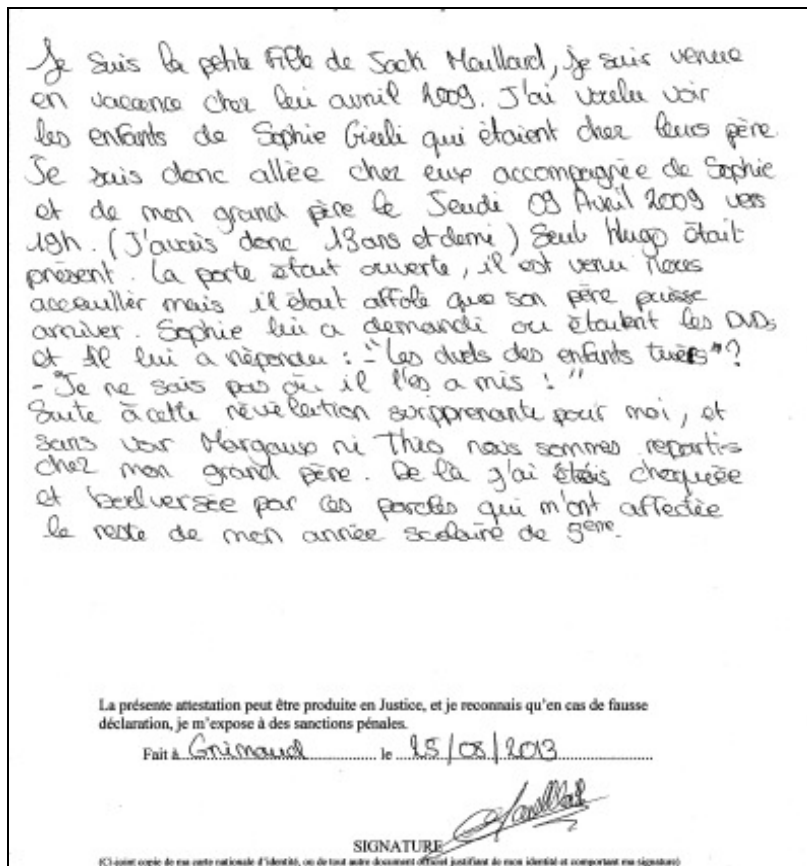 Je suis la petite fille de Jack Maillard, je suis venue
en vacance chez lui avril 2009. J'ai voulu voir
les enfants de Sophie Gieli qui étaient chez leurs père.
Je suis donc allée chez eux accompagnée de Sophie
et de mon grand père le Jeudi 09 Avril 2009 vers
19h. (J'avais donc 13 ans et demi) Seul Hugo était
présent. La porte était ouverte, il est venu nous
acceuillir mais il était affolé que son père puisse
arriver. Sophie lui a demandé ou étaient les DVDs
et il lui a répondu : - "Les dvds des enfants tués" ?
- Je ne sais pas où il l'es a mis ! "
Suite à cette révélation surpprenante pour moi, et
sans voir Margaux ni Théo nous sommes repartis
chez mon grand père. De là j'ai étais choquée
et bouleversée par ces paroles qui m'ont affectée
le reste de mon année scolaire de 5ème.
La présente attestation peut être produite en Justice, et je reconnais qu'en cas de fausse
déclaration, je m'expose à des sanctions pénales.
Fait à Grimaud le 25/08/2013
SIGNATURE
(Ci-joint copie de ma carte nationale d'identité, ou de tout autre document officiel justifiant de mon identité et comportant ma signature)